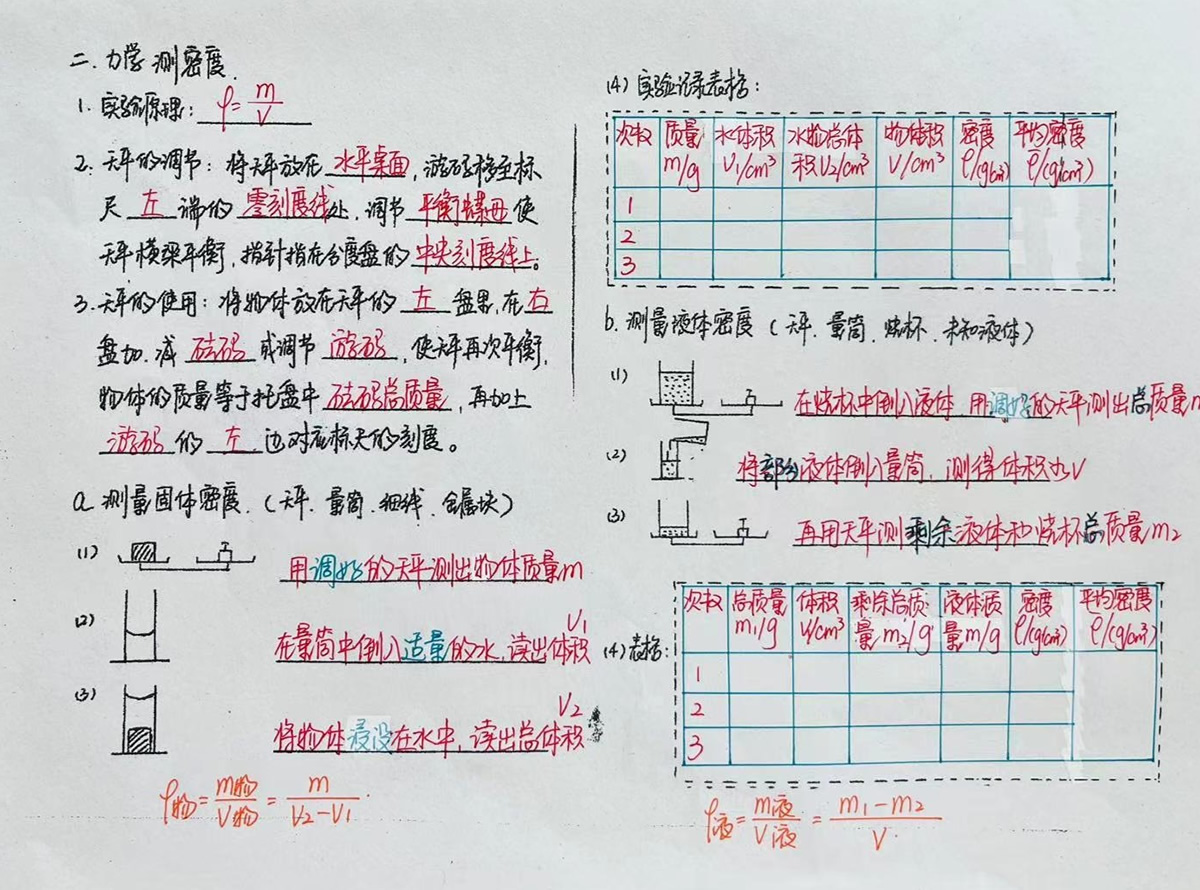 二. 力学 测密度.
1. 实验原理: ρ=m/V
2. 天平的调节: 将天平放在 水平桌面, 游码移至标
尺 左 端的 零刻度线处, 调节 平衡螺母 使
天平横梁平衡, 指针指在分度盘的 中央刻度线上。
3. 天平的使用: 将物体放在天平的 左 盘里, 在右
盘加. 减 砝码 或调节 游码, 使天平再次平衡,
物体的质量等于托盘中 砝码总质量, 再加上
游码 的 左 边对应标尺的刻度。
a. 测量固体密度. (天平. 量筒. 细线. 金属块)
(1) 用调好的天平测出物体质量m
(2) 在量筒中倒入适量的水, 读出体积V₁
(3) 将物体浸没在水中, 读出总体积V₂
ρ物=m物/V物=m/(V₂-V₁)
(4) 实验记录表格:
次数 质量m/g 水体积V₁/cm³ 水物总体积V₂/cm³ 物体积V/cm³ 密度ρ/(g/cm³) 平均密度ρ/(g/cm³)
1
2
3
b. 测量液体密度 (天平. 量筒. 烧杯. 未知液体)
(1) 在烧杯中倒入液体 用调好的天平测出总质量
(2) 将部分液体倒入量筒, 测得体积为V
(3) 再用天平测剩余液体和烧杯总质量m₂
(4) 表格:
次数 总质量m₁/g 体积V/cm³ 剩余总质量m₂/g 液体质量m/g 密度ρ/(g/cm³) 平均密度ρ/(g/cm³)
1
2
3
ρ液=m液/V液=(m₁-m₂)/V